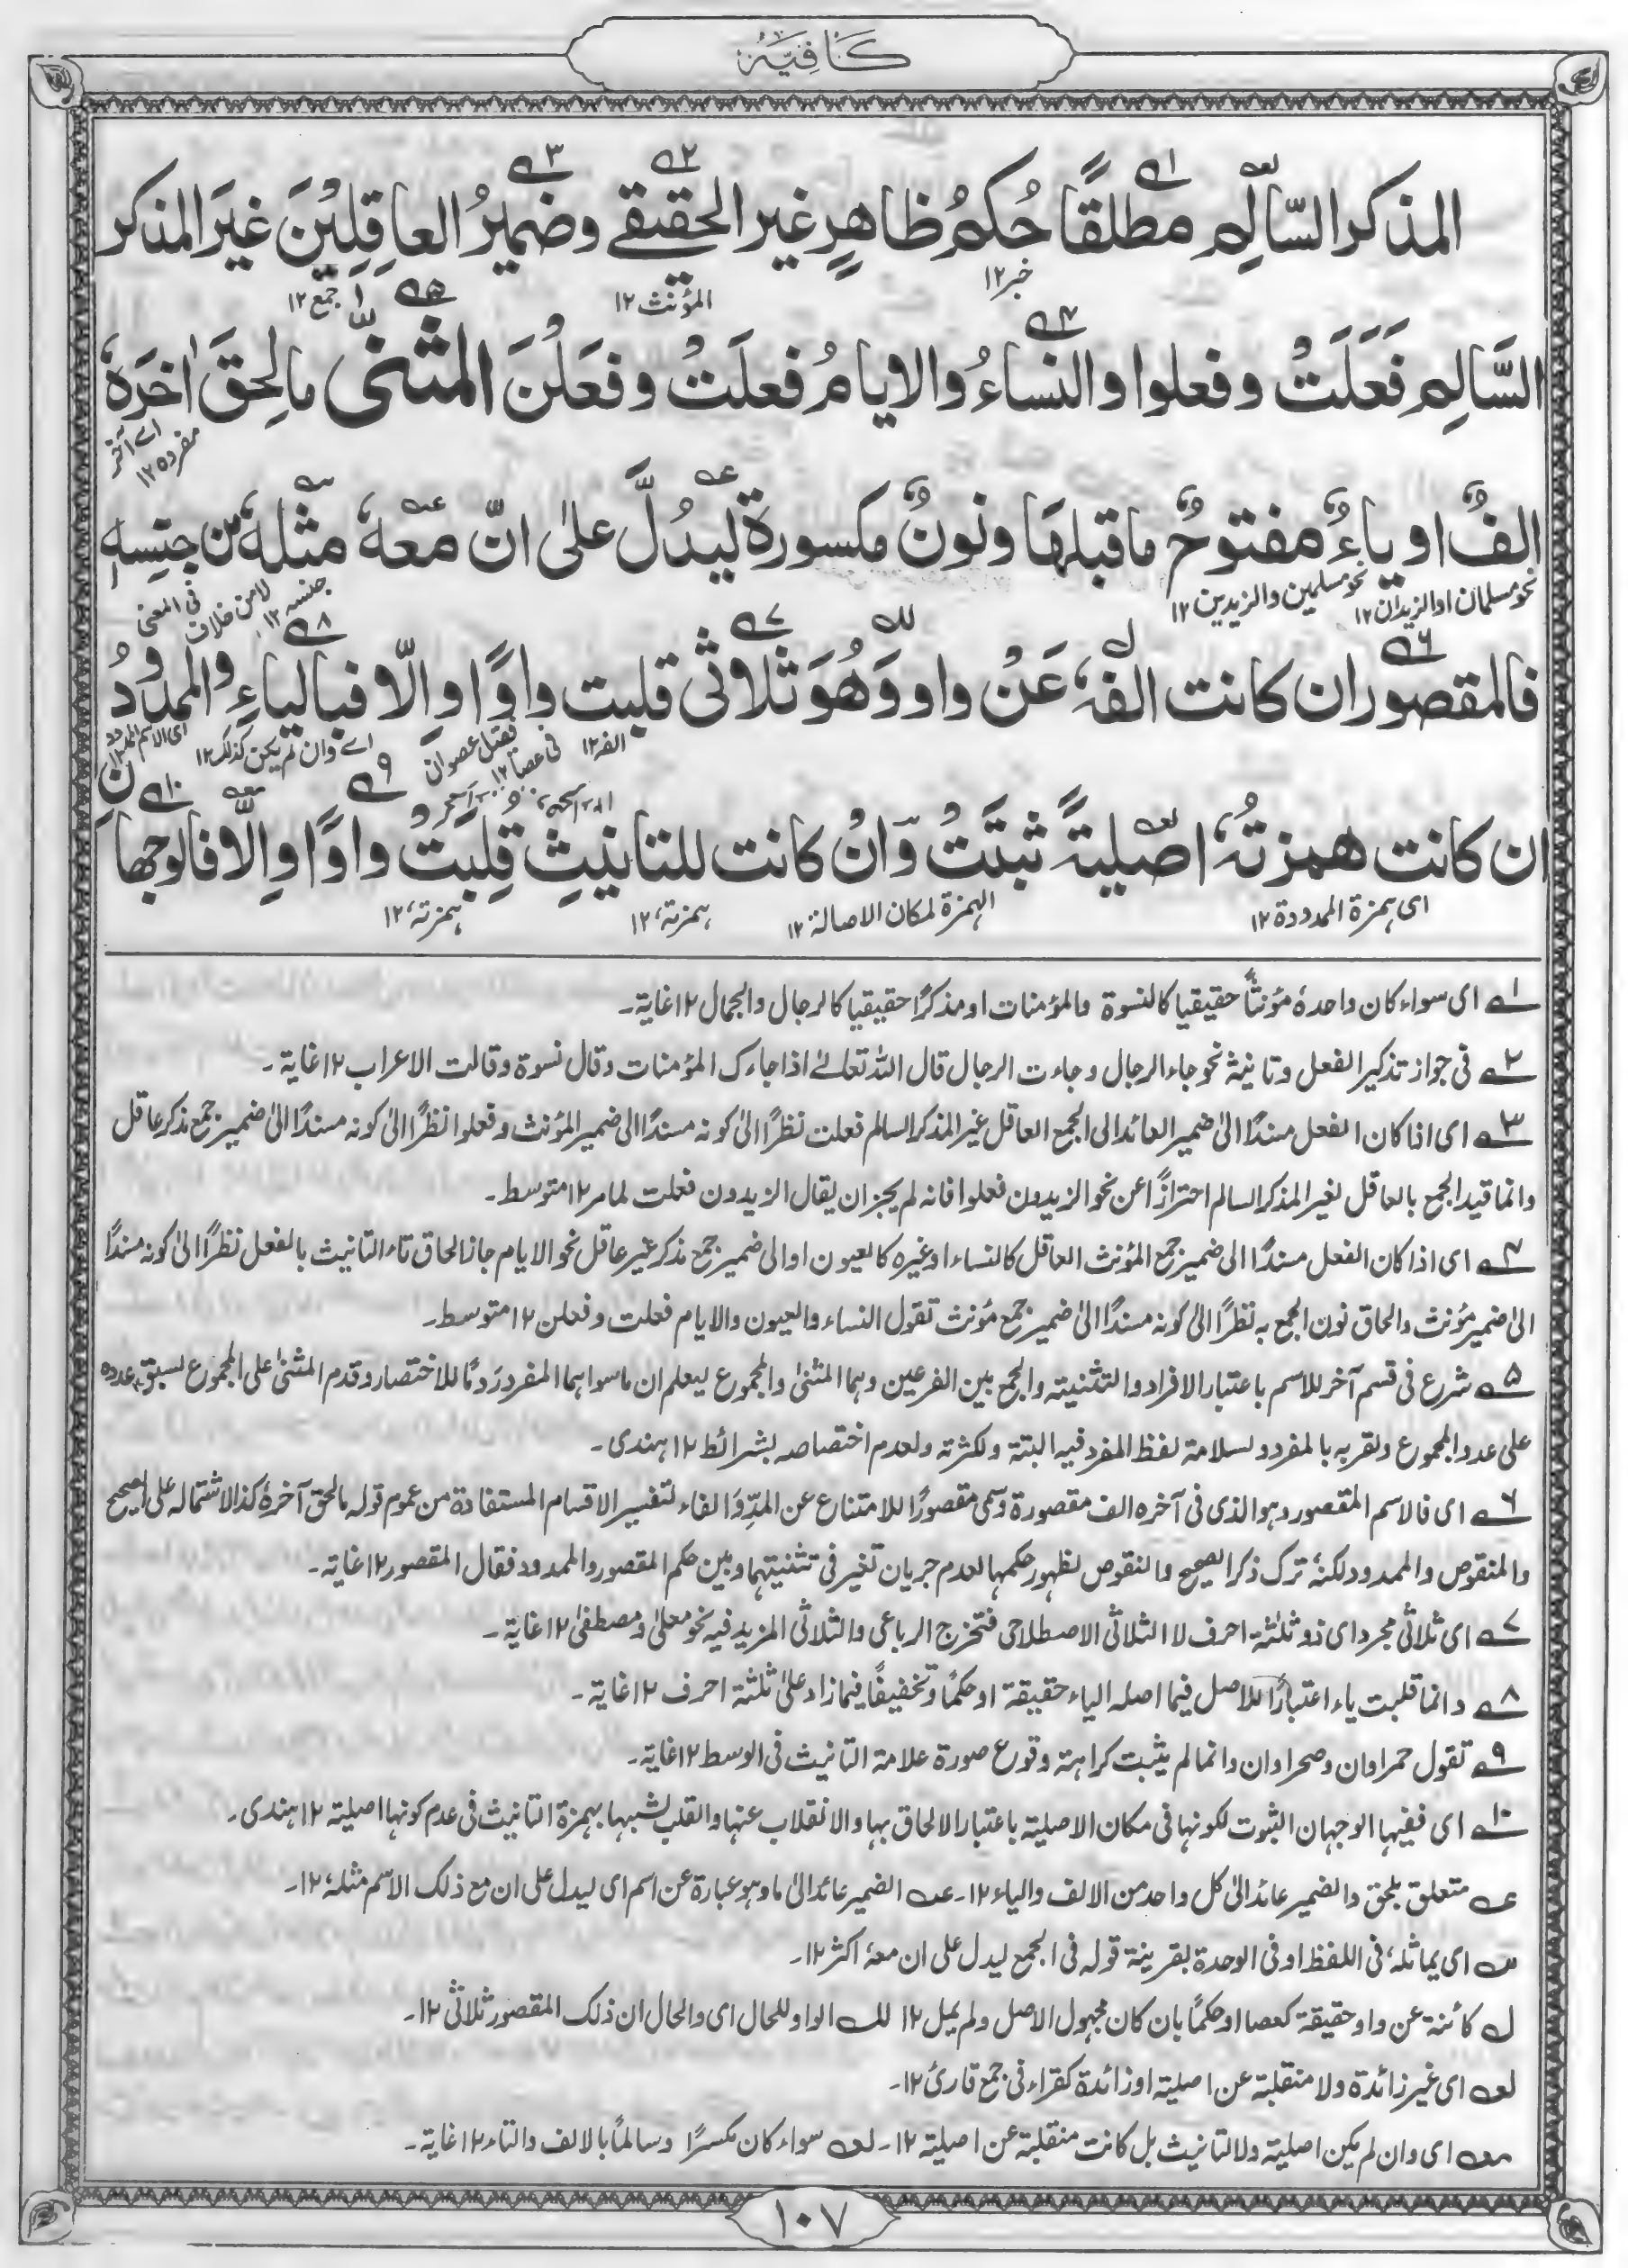 كَافِيَه
المذكر السّالِم مطلقًا حُكمُ ظاهِرٍ غير الحقيقے وضميرُ العاقِلِيْنَ غيَر المذكر
خبر١٢
المؤنث ١٢
جمع ١٢
السَّالِمِ فَعَلَتْ وفعلوا والنساءُ والايامُ فعلَتْ وفعَلْنَ المثنىّ مالحِقَ اٰخرَهٗ
اے آخر
مفرده ١٢
الفٌ اوياءٌ مفتوحٌ ماقبلهَا ونونٌ مكسورة ليَدُلَّ علىٰ انّ معهٗ مثلهٗ من جنسِهٖ
نحو مسلمان اوالزيدان ١٢
نحو مسلمين والزيدين ١٢
فالمقصور ان كانت الفهٗ عَنْ واو وَهُوَ ثلاثى قلبت واوًا واِلّا فبالياءِ والممدودُ
الفه ١٢
فى عصا ١٢
اے وان لم يكن كذلك ١٢
اى الاسم الممدود ١٢
ان كانت همزتُهٗ اصليةً ثبتَتْ وَانْ كانت للتانيثِ قلِبَتْ واوًا واِلّا فالوجها
ن
اى ہمزة الممدودة ١٢
الہمزة لمكان الاصالة ١٢
ہمزتہٗ ١٢
ہمزتہٗ ١٢
١ اى سواء كان واحدهٗ مؤنثًا حقيقيا كالنسوة والمؤمنات او مذكرًا حقيقيا كالرجال والجمال ١٢ غاية۔
٢ فى جواز تذكير الفعل وتانيثه نحو جاء الرجال وجاءت الرجال قال اللّٰہ تعالےٰ اذا جاءك المؤمنات وقال نسوة وقالت الاعراب ١٢ غاية۔
٣ اى اذا كان الفعل مسندًا الىٰ ضمير العائد الى الجمع العاقل غير المذكر السالم فعلت نظرًا الىٰ كونه مسندًا الىٰ ضمير المؤنث وفعلوا نظرًا الىٰ كونه مسندًا الىٰ ضمير جمع مذكر عاقل
وانما قيد الجمع بالعاقل لغير المذكر السالم احترازًا عن نحو الزيدون فعلوا فانه لم يجز ان يقال الزيدون فعلت لمامر ١٢ متوسط۔
٤ اى اذا كان الفعل مسندًا الى ضمير جمع المؤنث العاقل كالنساء او غيره كالعيون او الى ضمير جمع مذكر غير عاقل نحو الايام جاز الحاق تاء التانيث بالفعل نظرًا الىٰ كونه مسندًا
الىٰ ضمير مؤنث والحاق نون الجمع به نظرًا الىٰ كونه مسندًا الىٰ ضمير جمع مؤنث تقول النساء والعيون والايام فعلت وفعلن ١٢ متوسط۔
٥ شرع فى قسم آخر للاسم باعتبار الافراد والتثنية والجمع بين الفرعين وہما المثنىٰ والمجموع ليعلم ان ما سواہما المفرد رَومًا للاختصار وقدم المثنىٰ على المجموع لسبق عدده
على عدد المجموع ولقربه بالمفرد ولسلامة لفظ المفرد فيه البتة ولكثرته ولعدم اختصاصه بشرائط ١٢ ہندى۔
٦ اى فالاسم المقصور وہو الذى فى آخره الف مقصورة وسمى مقصورًا للامتناع عن المدِّ والفاء لتفسير الاقسام المستفادة من عموم قوله مالحق آخرهٗ كذا لاشتماله على الصحيح
والمنقوص والممدود لكنهٗ ترك ذكر الصحيح والمنقوص لظہور حكمہما لعدم جريان تغير فى تثنيتہما وبين حكم المقصور والممدود فقال المقصور ١٢ غاية۔
٧ اى ثلاثى مجرد اى ذو ثلثة احرف لا الثلاثى الاصطلاحى فتخرج الرباعى والثلاثى المزيد فيه نحو معلىٰ ومصطفىٰ ١٢ غاية۔
٨ وانما قلبت ياء اعتبارًا للاصل فيما اصله الياء حقيقة او حكمًا وتخفيفًا فيما زاد علىٰ ثلثة احرف ١٢ غاية۔
٩ تقول حمراوان وصحراوان وانما لم يثبت كراہة وقوع صورة علامة التانيث فى الوسط ١٢ غاية۔
١٠ اى ففيہا الوجہان الثبوت لكونہا فى مكان الاصلية باعتبار الالحاق بہا والانقلاب عنہا والقلب لشبہہا بہمزة التانيث فى عدم كونہا اصلية ١٢ ہندى۔
متعلق بلحق والضمير عائد الىٰ كل واحد من الالف والياء ١٢۔ عــہ الضمير عائد الىٰ ما وہو عبارة عن اسم اى ليدل على ان مع ذلك الاسم مثله ١٢۔
اى يماثلهٗ فى اللفظ او فى الوحدة بقرينة قوله فى الجمع ليدل على ان معهٗ اكثر ١٢۔
ل كائنة عن واو حقيقة كعصا او حكمًا بان كان مجہول الاصل ولم يمل ١٢ للــہ الواو للحال اى والحال ان ذلك المقصور ثلاثى ١٢۔
اى غير زائدة ولا منقلبة عن اصلية او زائدة كقراء فى جمع قارئ ١٢۔
اى وان لم يكن اصلية ولا للتانيث بل كانت منقلبة عن اصلية ١٢۔ سواء كان مكسرًا وسالمًا بالالف والتاء ١٢ غاية۔
١٠٧